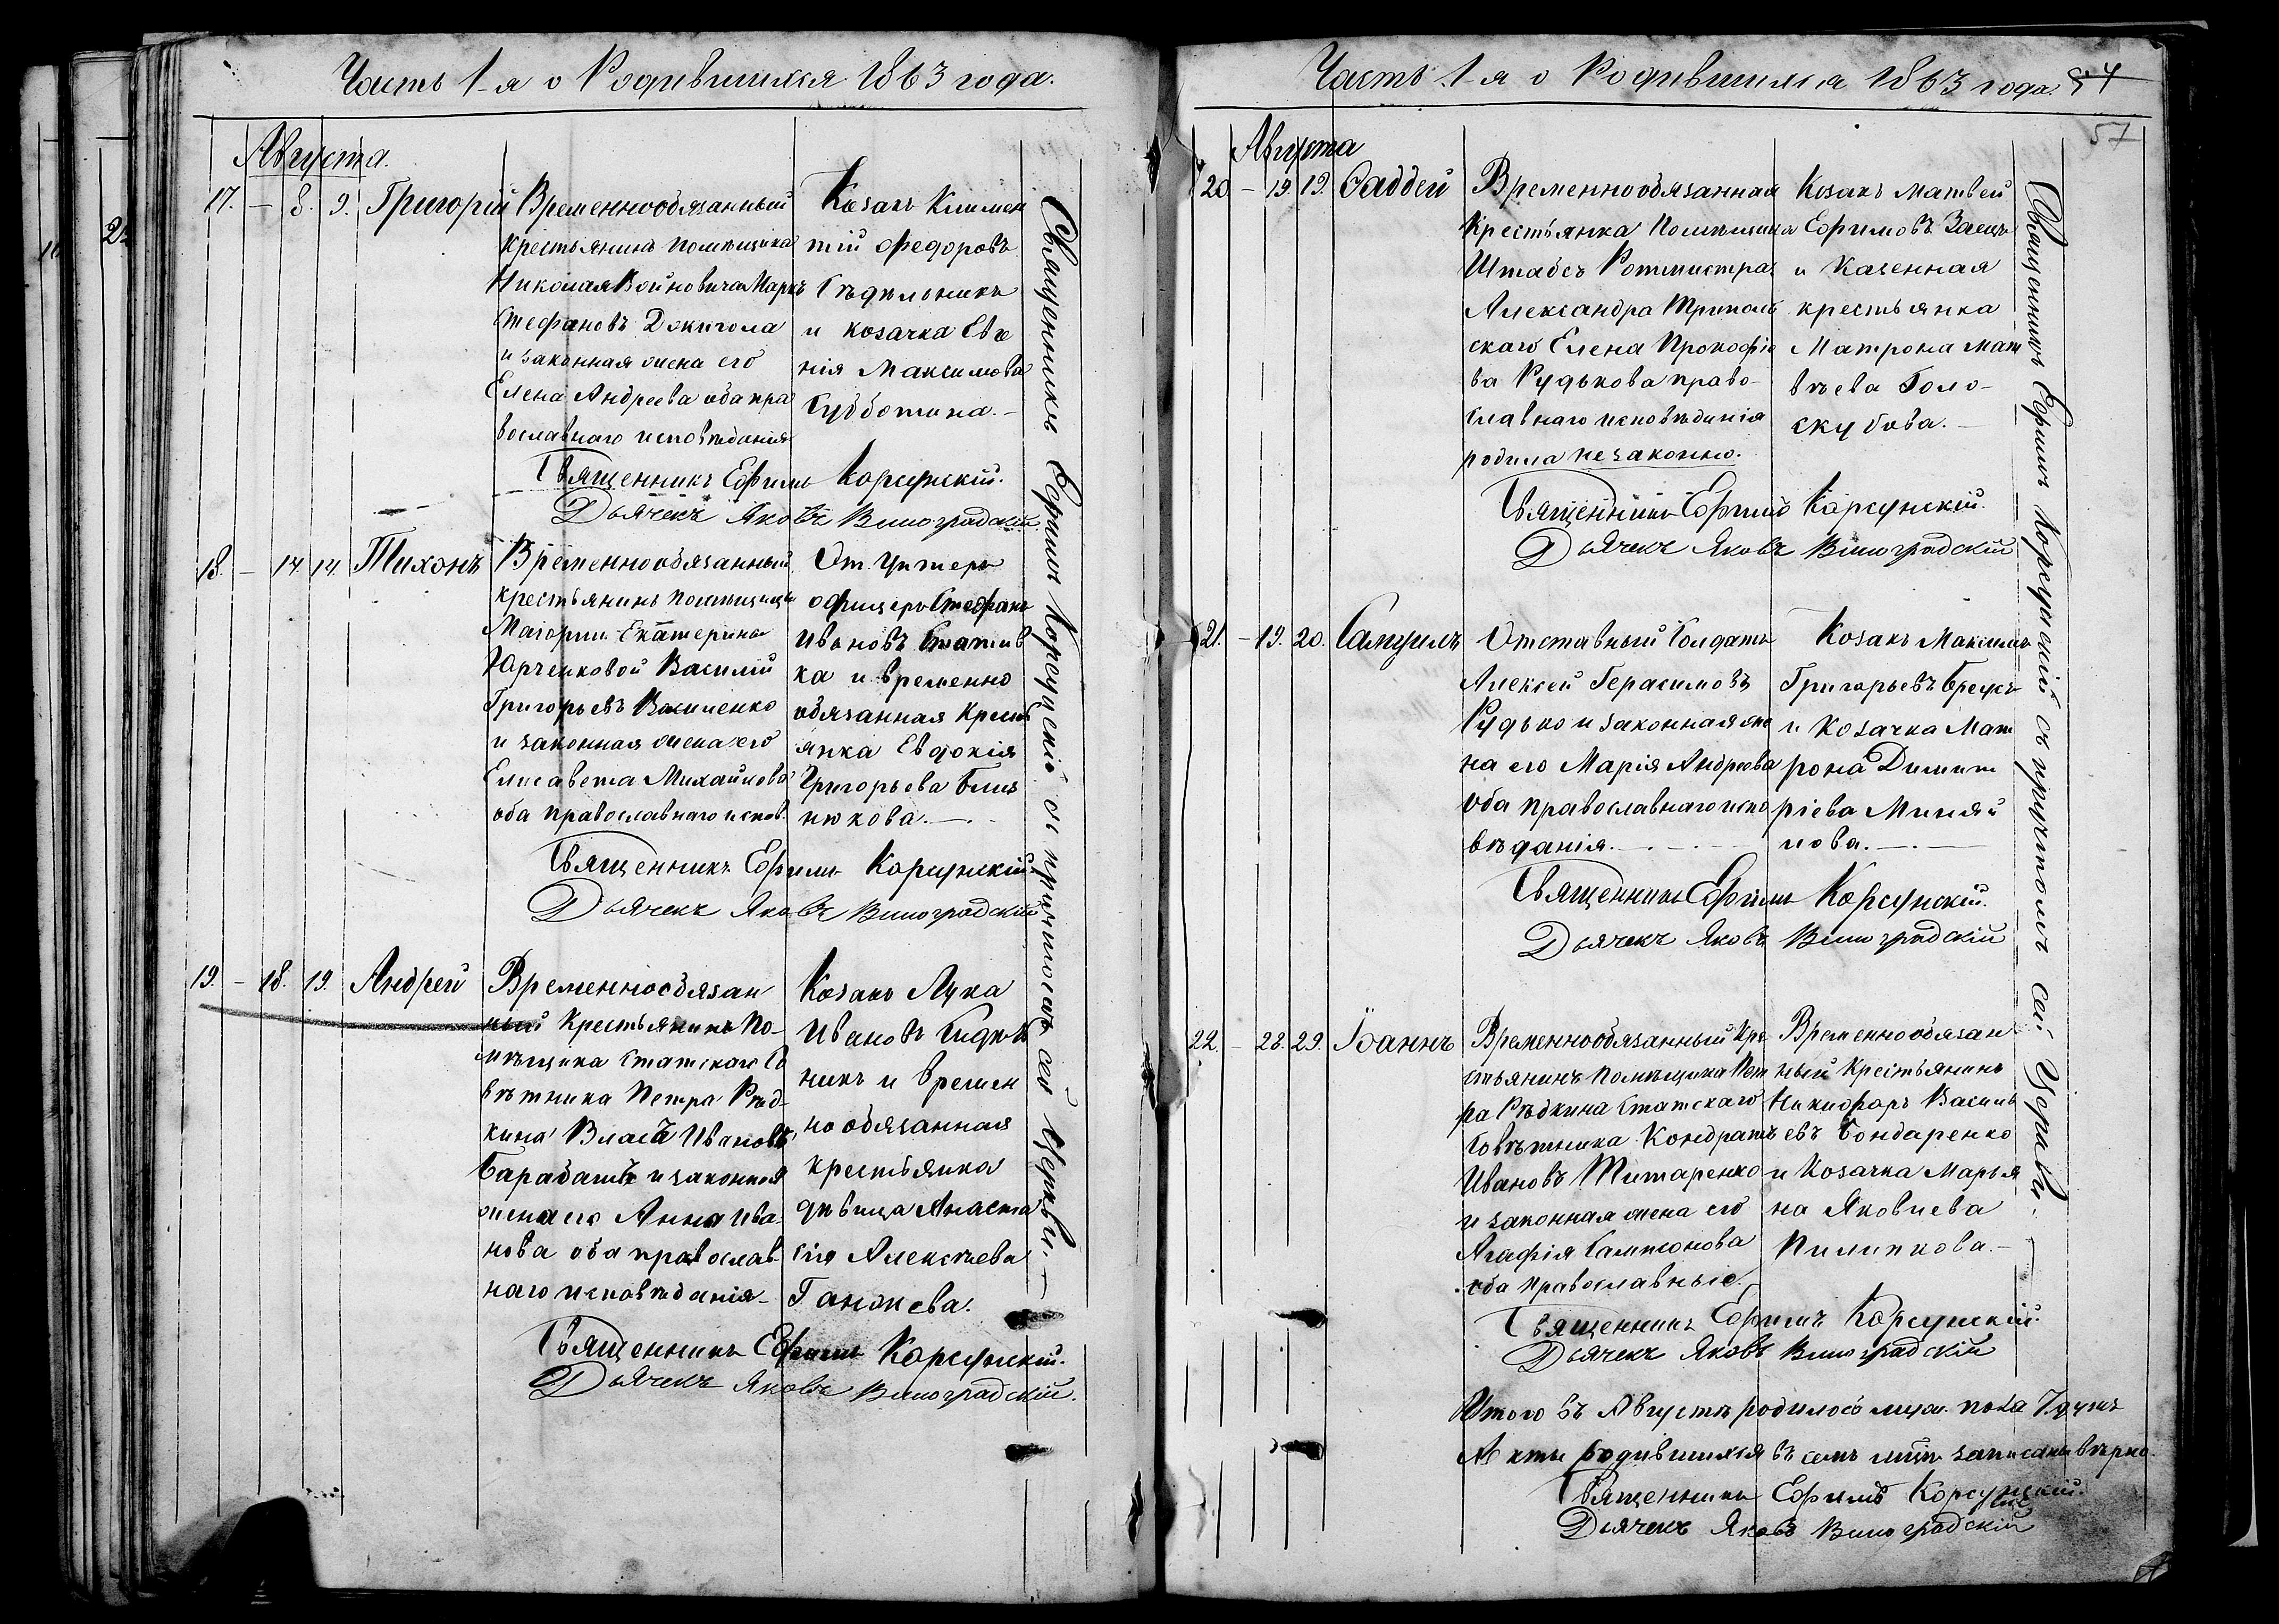 Часть 1-я о Родившихся 1863 года.
Августа.
17. - 8. 9. Григорій
Временнообязанный
крестьянинъ помѣщика
Николая Войновича Маркъ
Стефановъ
и законная жена его
Елена Андреева оба пра
вославнаго исповѣданія
Козакъ Климен
тій Федоровъ
и козачка Евге
нія Максимова
Субботина.
Священникъ Ефимъ Корсунскій.
Дьячекъ Яковъ Виноградскій
18. - 14. 14. Тихонъ
Временнообязанный
крестьянинъ помѣщицы
Маіорши Екатерины
Юрченковой Василій
Григорьевъ Василенко
и законная жена его
Елисавета Михайлова
оба православнаго испов.
От. Унтеръ
офицеръ Стефанъ
Ивановъ Статив
ка и временно
обязанная Крест
янка Евдокія
Григорьева Близ
нюкова.
Священникъ Ефимъ Корсунскій
Дьячекъ Яковъ Виноградскій
19. - 18. 19. Андрей
Временнообязан
ный Крестьянинъ по-
мѣщика Статскаго Со
вѣтника Петра Рѣд-
кина Власъ Ивановъ
Барабашъ и законная
жена его Анна Ива-
нова оба православ-
наго исповѣданія
Козакъ Лука
Ивановъ
никъ и времен
но обязанная
крестьянка
дѣвица Анаста
сія Алексѣева
Ганжева.
Священникъ Ефимъ Корсунскій.
Дьячекъ Яковъ Виноградскій.
Священникъ Ефимъ Корсунскій съ причтомъ сей Церкви.
Часть 1-я о Родившихся 1863 года. 54
57
Августа
20. - 19. 19. Фаддей
Временнообязанная
Крестьянка Помѣщика
Штабсъ Ротмистра
Александра Триполь
скаго Елена Прокофіе
ва Рудькова право-
славнаго исповѣданія
родила незаконно.
Козакъ Матвей
Ефимовъ Заецъ
и Казенная
крестьянка
Матрона Мат
вѣева Голо-
скубова.
Священникъ Ефимъ Корсунскій.
Дьячекъ Яковъ Виноградскій
21. - 19. 20. Самуилъ
Отставный Солдатъ
Алексей Герасимовъ
Рудько и законная же
на его Марія Андреева
оба православнаго испо
вѣданія.
Козакъ Максимъ
Григорьевъ
и Козачка Мат
рона Димит
ріева Миняй
лова.
Священникъ Ефимъ Корсунскій.
Дьячекъ Яковъ Виноградскій
22. - 28. 29. Іоаннъ
Временнообязанный Кре
стьянинъ помѣщика Пет
ра Рѣдкина Статскаго
Совѣтника Кондратъ
Ивановъ Титаренко
и законная жена его
Агафія Сампсонова
оба православные.
Временнообязан
ный Крестьянинъ
Никифоръ Василь
евъ Бондаренко
и Козачка Марья
на Яковлева
Пилипкова.
Священникъ Ефимъ Корсунскій.
Дьячекъ Яковъ Виноградскій
Итого въ Августѣ родилось муж. пола 7. душъ
Акты Родившихся въ семъ мцѣ записаны вѣрно.
Священникъ Ефимъ Корсунскій.
Дьячекъ Яковъ Виноградскій
Священникъ Ефимъ Корсунскій съ причтомъ сей Церкви.